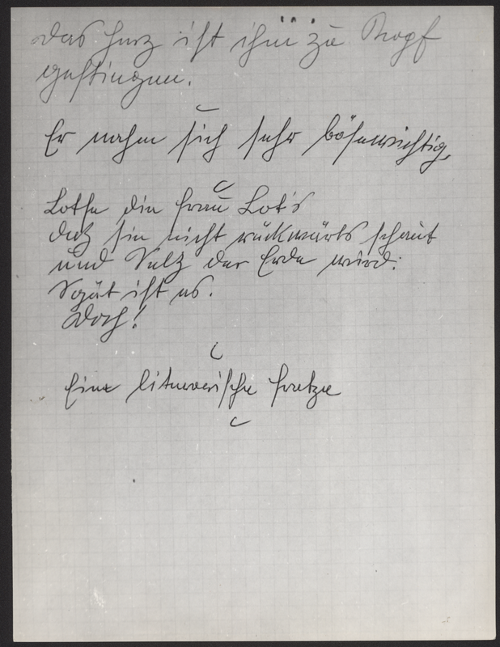 Das Herz ist ihm zu Kopf
gestiegen.
Er nahm sich sehr bösewichtig,
die Frau Lot's
daß sie nicht rückwärts schaut
und Salz der Erde wird:
Spät ist es.
Doch!
Eine literarische Fratze